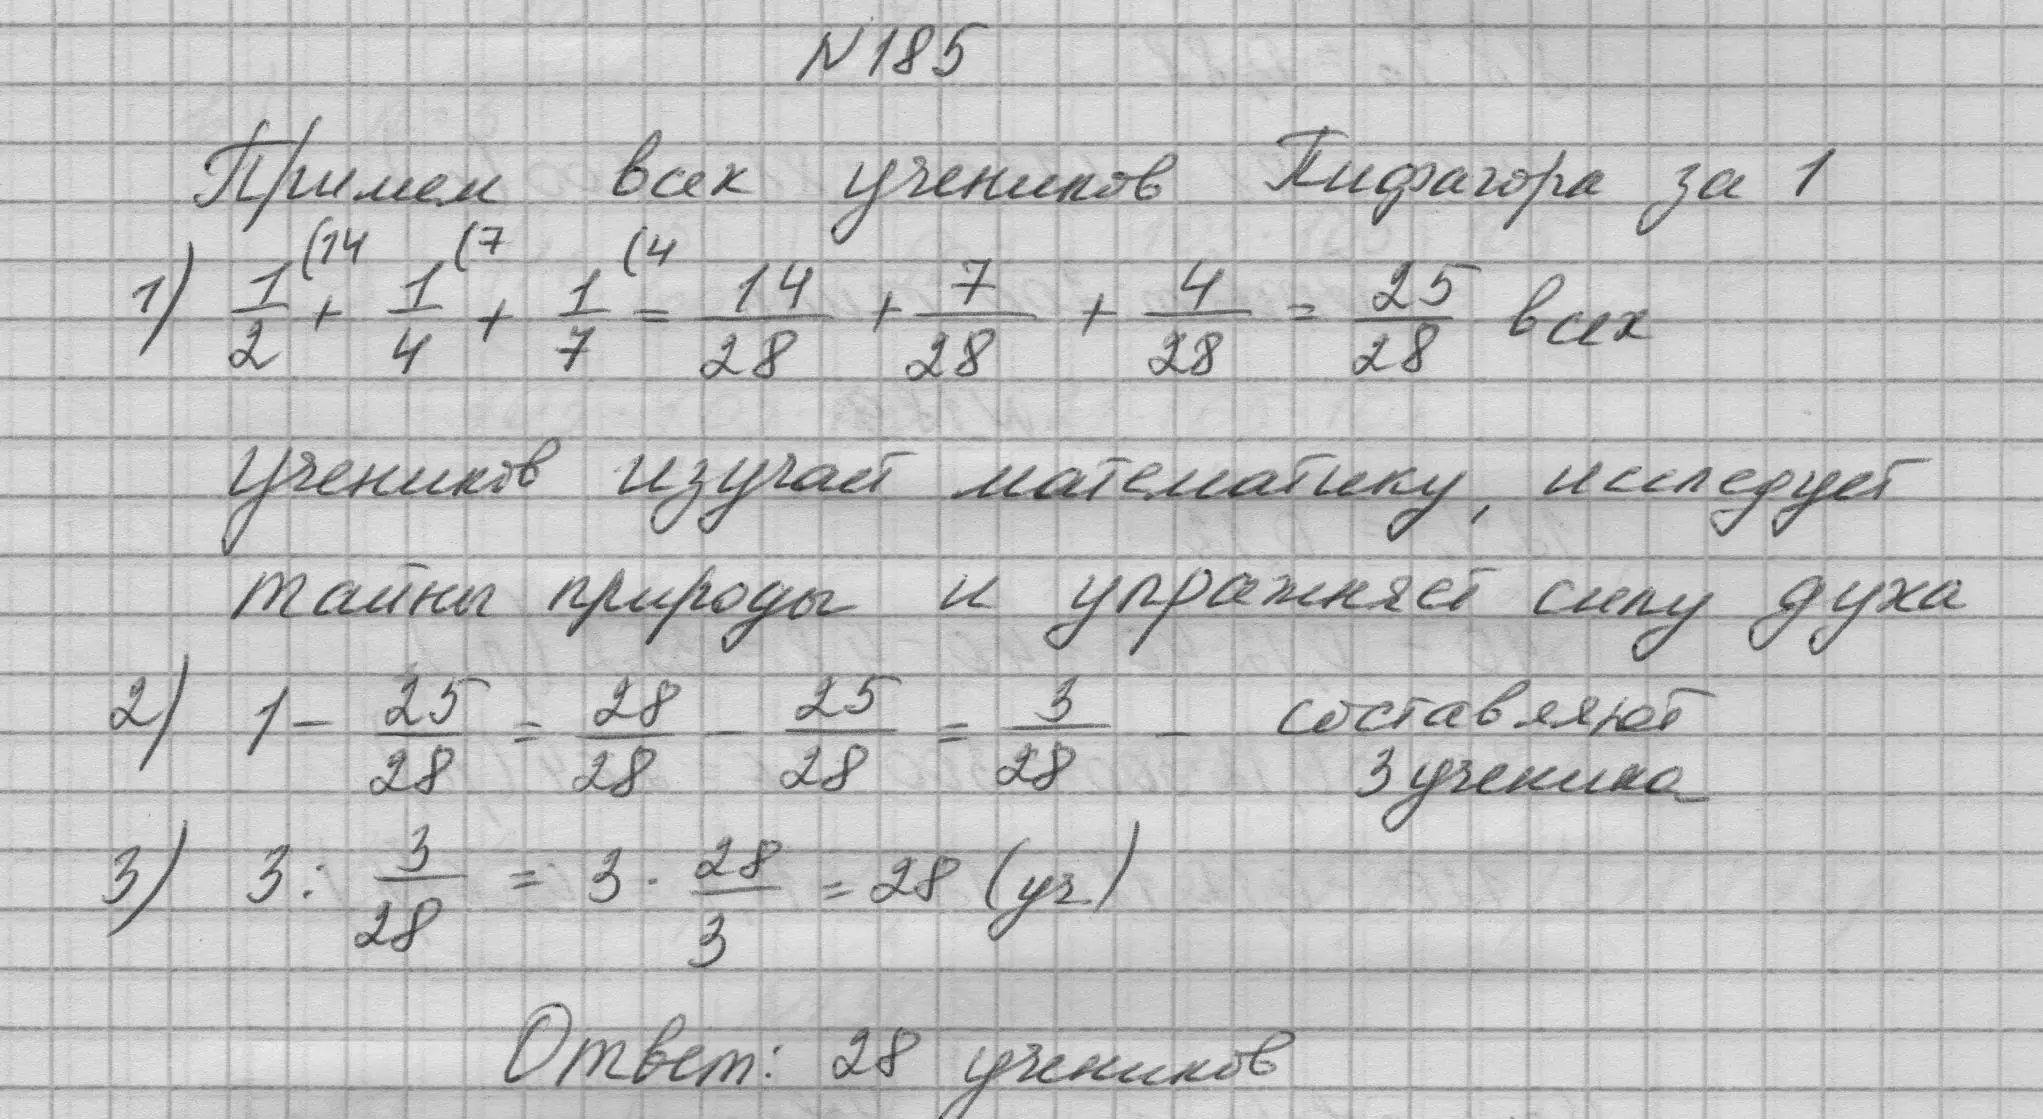 N185
Примем всех учеников Пифагора за 1
1) 1/2 (14 + 1/4 (7 + 1/7 (4 = 14/28 + 7/28 + 4/28 = 25/28 всех
учеников изучает математику, исследует
тайны природы и упражняет силу духа
2) 1 - 25/28 = 28/28 - 25/28 = 3/28 - составляют
3 ученика
3) 3 : 3/28 = 3 · 28/3 = 28 (уч.)
Ответ: 28 учеников